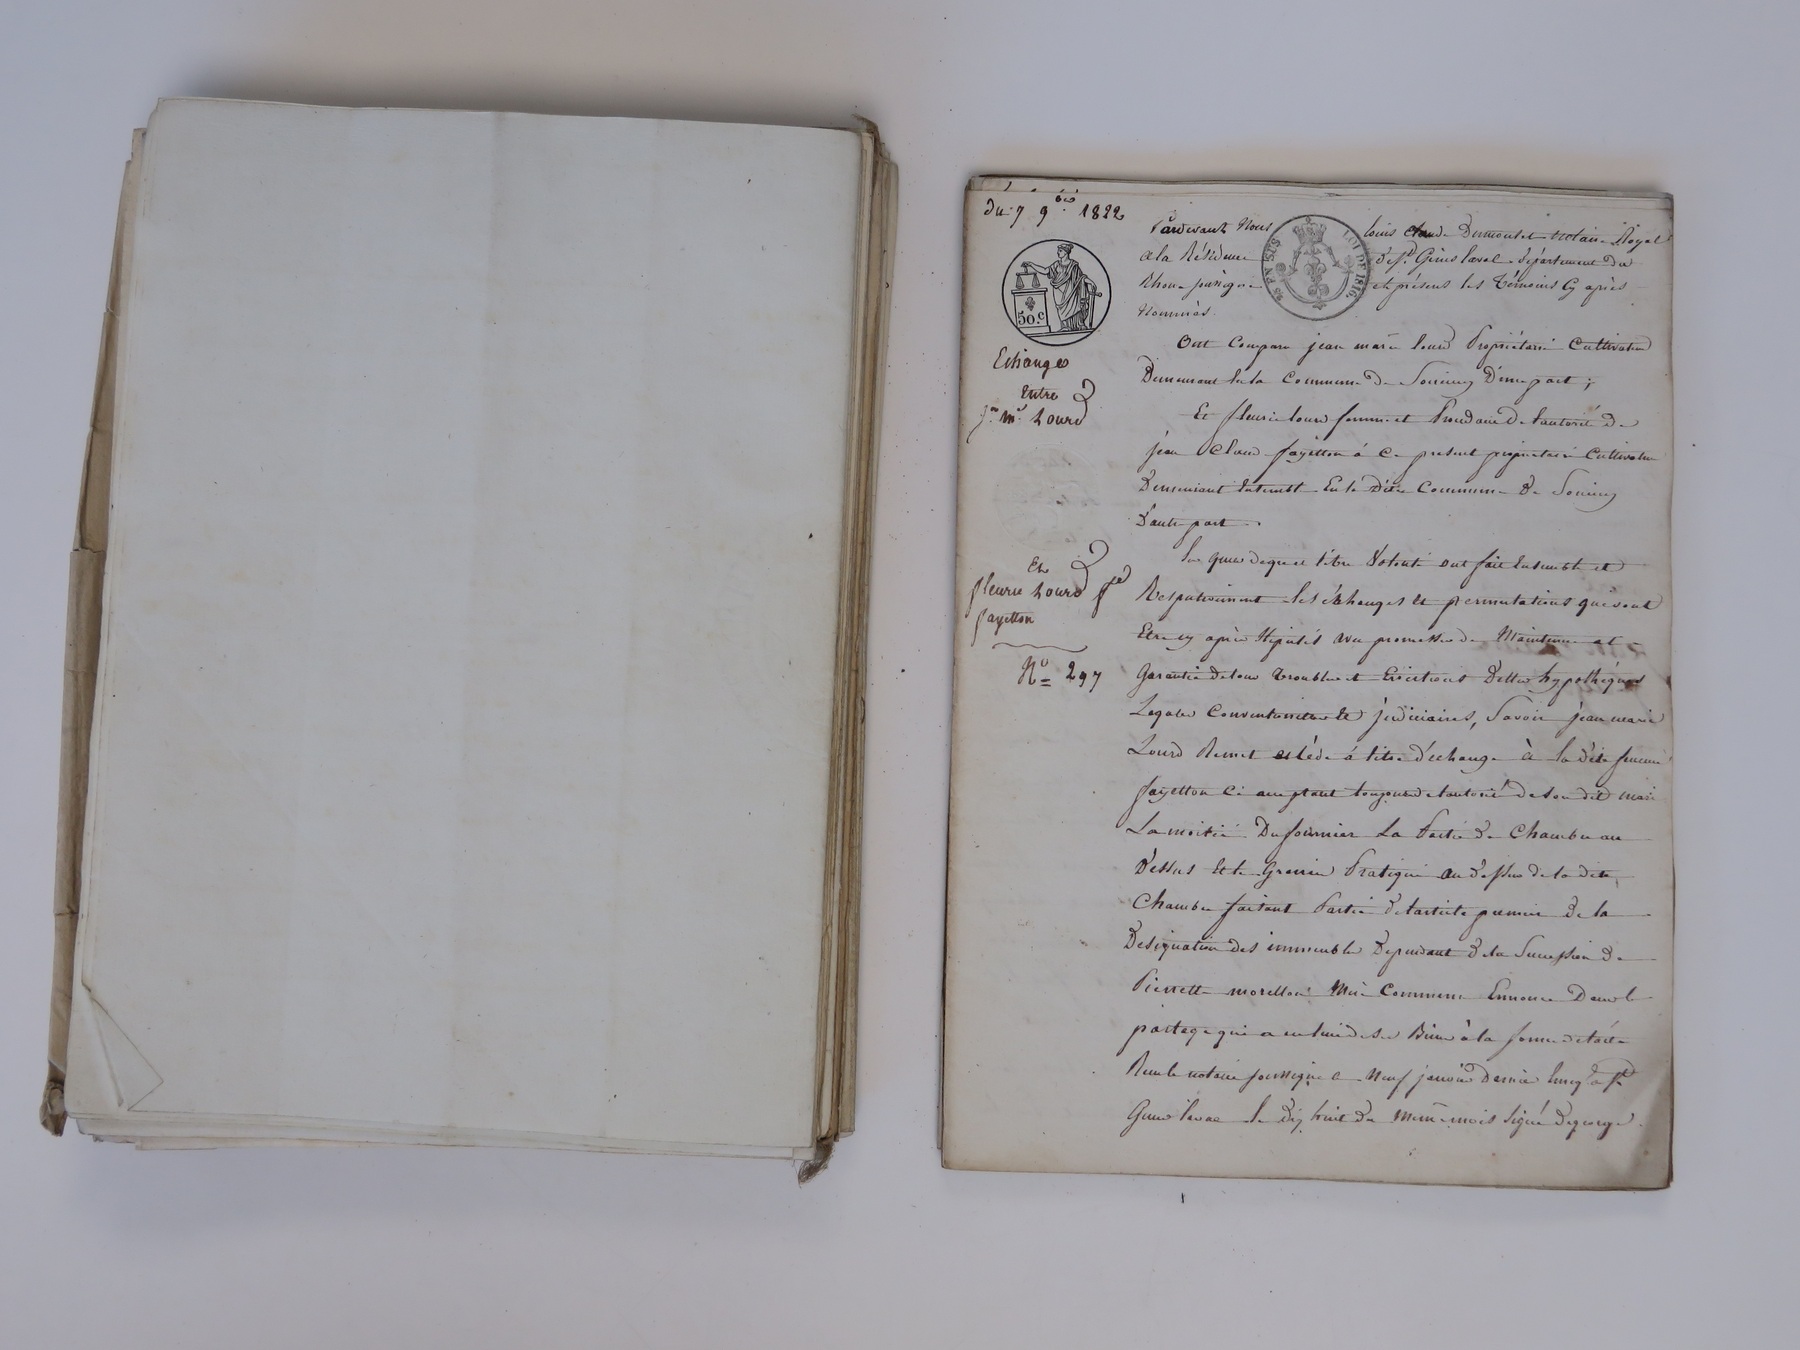 du 7 9bre 1822
50.c
Echanges
Entre
Jn Mie Lourd
Et
fleurie Lourd fe
fayetton
No 297
Pardevant Nous Louis Claude Dumoulet notaire Royal
a la Résidence de St Genis laval département du
Rhone soussigné et présens les Témoins Cy après
Nommés.
EN SUS
LOI DE 1816
Ont Comparu jean marie lourd Propriétaire Cultivateur
Demeurant la Commune de Soucieu D'une part ;
Et fleurie lourd femme et de l'autorité de
jean Claude fayetton à Ce présent propriétaire Cultivateur
Demeurant Ensemble En la dite Commune de Soucieu
D'autre part.
Les quels de gré et libre Volonté ont fait Ensemble et
Respectivement les échanges et permutations qui vont
Etre cy après stipulés avec promesse de Maintenue et
Garantie de tous troubles et Evictions Dettes hypothéques
Legales Conventionnelles et judiciaires, Savoir jean marie
Lourd Remet et Cède à titre d'échange à la dite femme
fayetton Ci acceptant toujours de l'autorité de son dit mari
La moitié Du fournier La Partie de Chambre au
Dessus et le Grenier Pratiqué au dessus de la dite
Chambre faisant Partie de l'article premier de la
Designation des immeubles Dependant de la Succession de
Pierrette morellon Mère Commune Enoncé Dans le
partage qui a eu lieu de ses Biens à la forme de l'acte
Recu le notaire soussigné le Neuf janvier Dernier Enreg. à St
Genis laval le dix huit du Même mois Signé Degeorge.